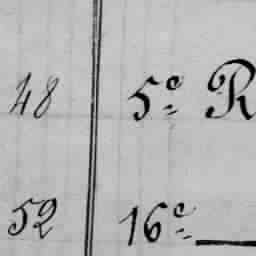 48 5e R
52 16e